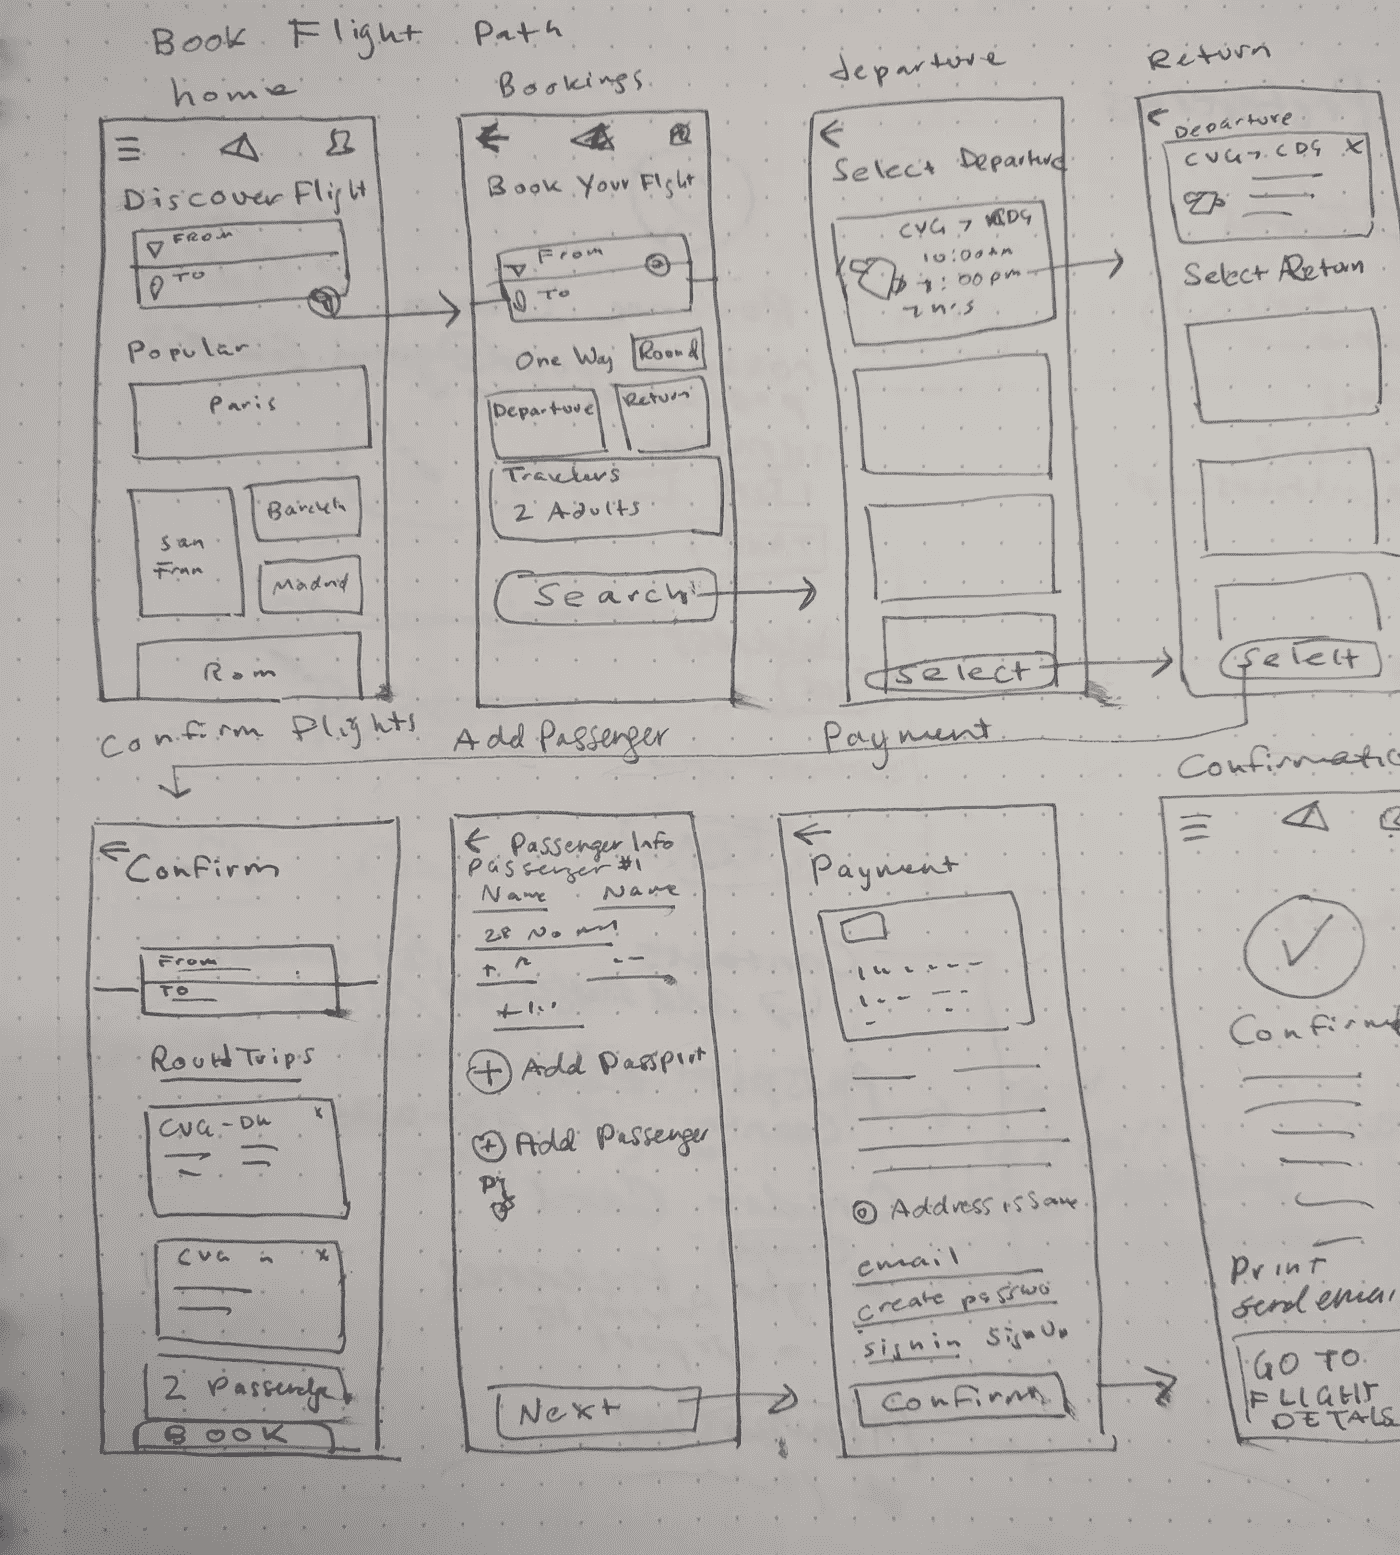 Book Flight Path
home
Discover Flight
FROM
TO
Popular
Paris
San
Fran
Madrid
Rom
Bookings
Book Your Flight
From
TO
One Way
Round
Departure
Return
Travelers
2 Adults
Search
departure
Select Departure
CVG > CDG
10:00am
:00pm
Select
Return
Departure
CVG > CDG X
Select Return
Select
Confirm Flights
Confirm
From
TO
Round Trips
CVG - x
CVG x
2
BOOK
Add Passenger
Passenger Info
Passenger #1
Name Name
Add
Add Passenger
Next
Payment
Payment
Address is same
email
create passwo
sign in sign up
Confirm
Confirmatio
Confirm
Print
send emai
GO TO
FLIGHT
DETALS